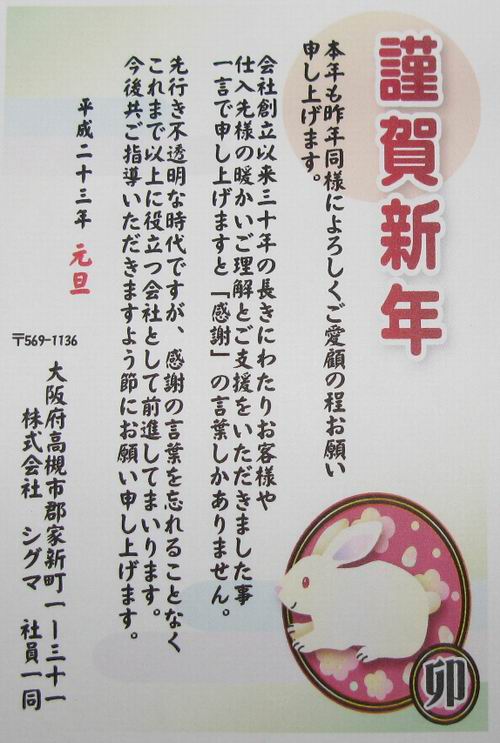 謹賀新年
本年も昨年同様によろしくご愛顧の程お願い
申し上げます。
会社創立以来三十年の長きにわたりお客様や
仕入先様の暖かいご理解とご支援をいただきました事
一言で申し上げますと「感謝」の言葉しかありません。
先行き不透明な時代ですが、感謝の言葉を忘れることなく
これまで以上に役立つ会社として前進してまいります。
今後共ご指導いただきますよう節にお願い申し上げます。
平成二十三年 元旦
〒569-1136
大阪府高槻市郡家新町一ー三十一
株式会社 シグマ 社員一同
卯